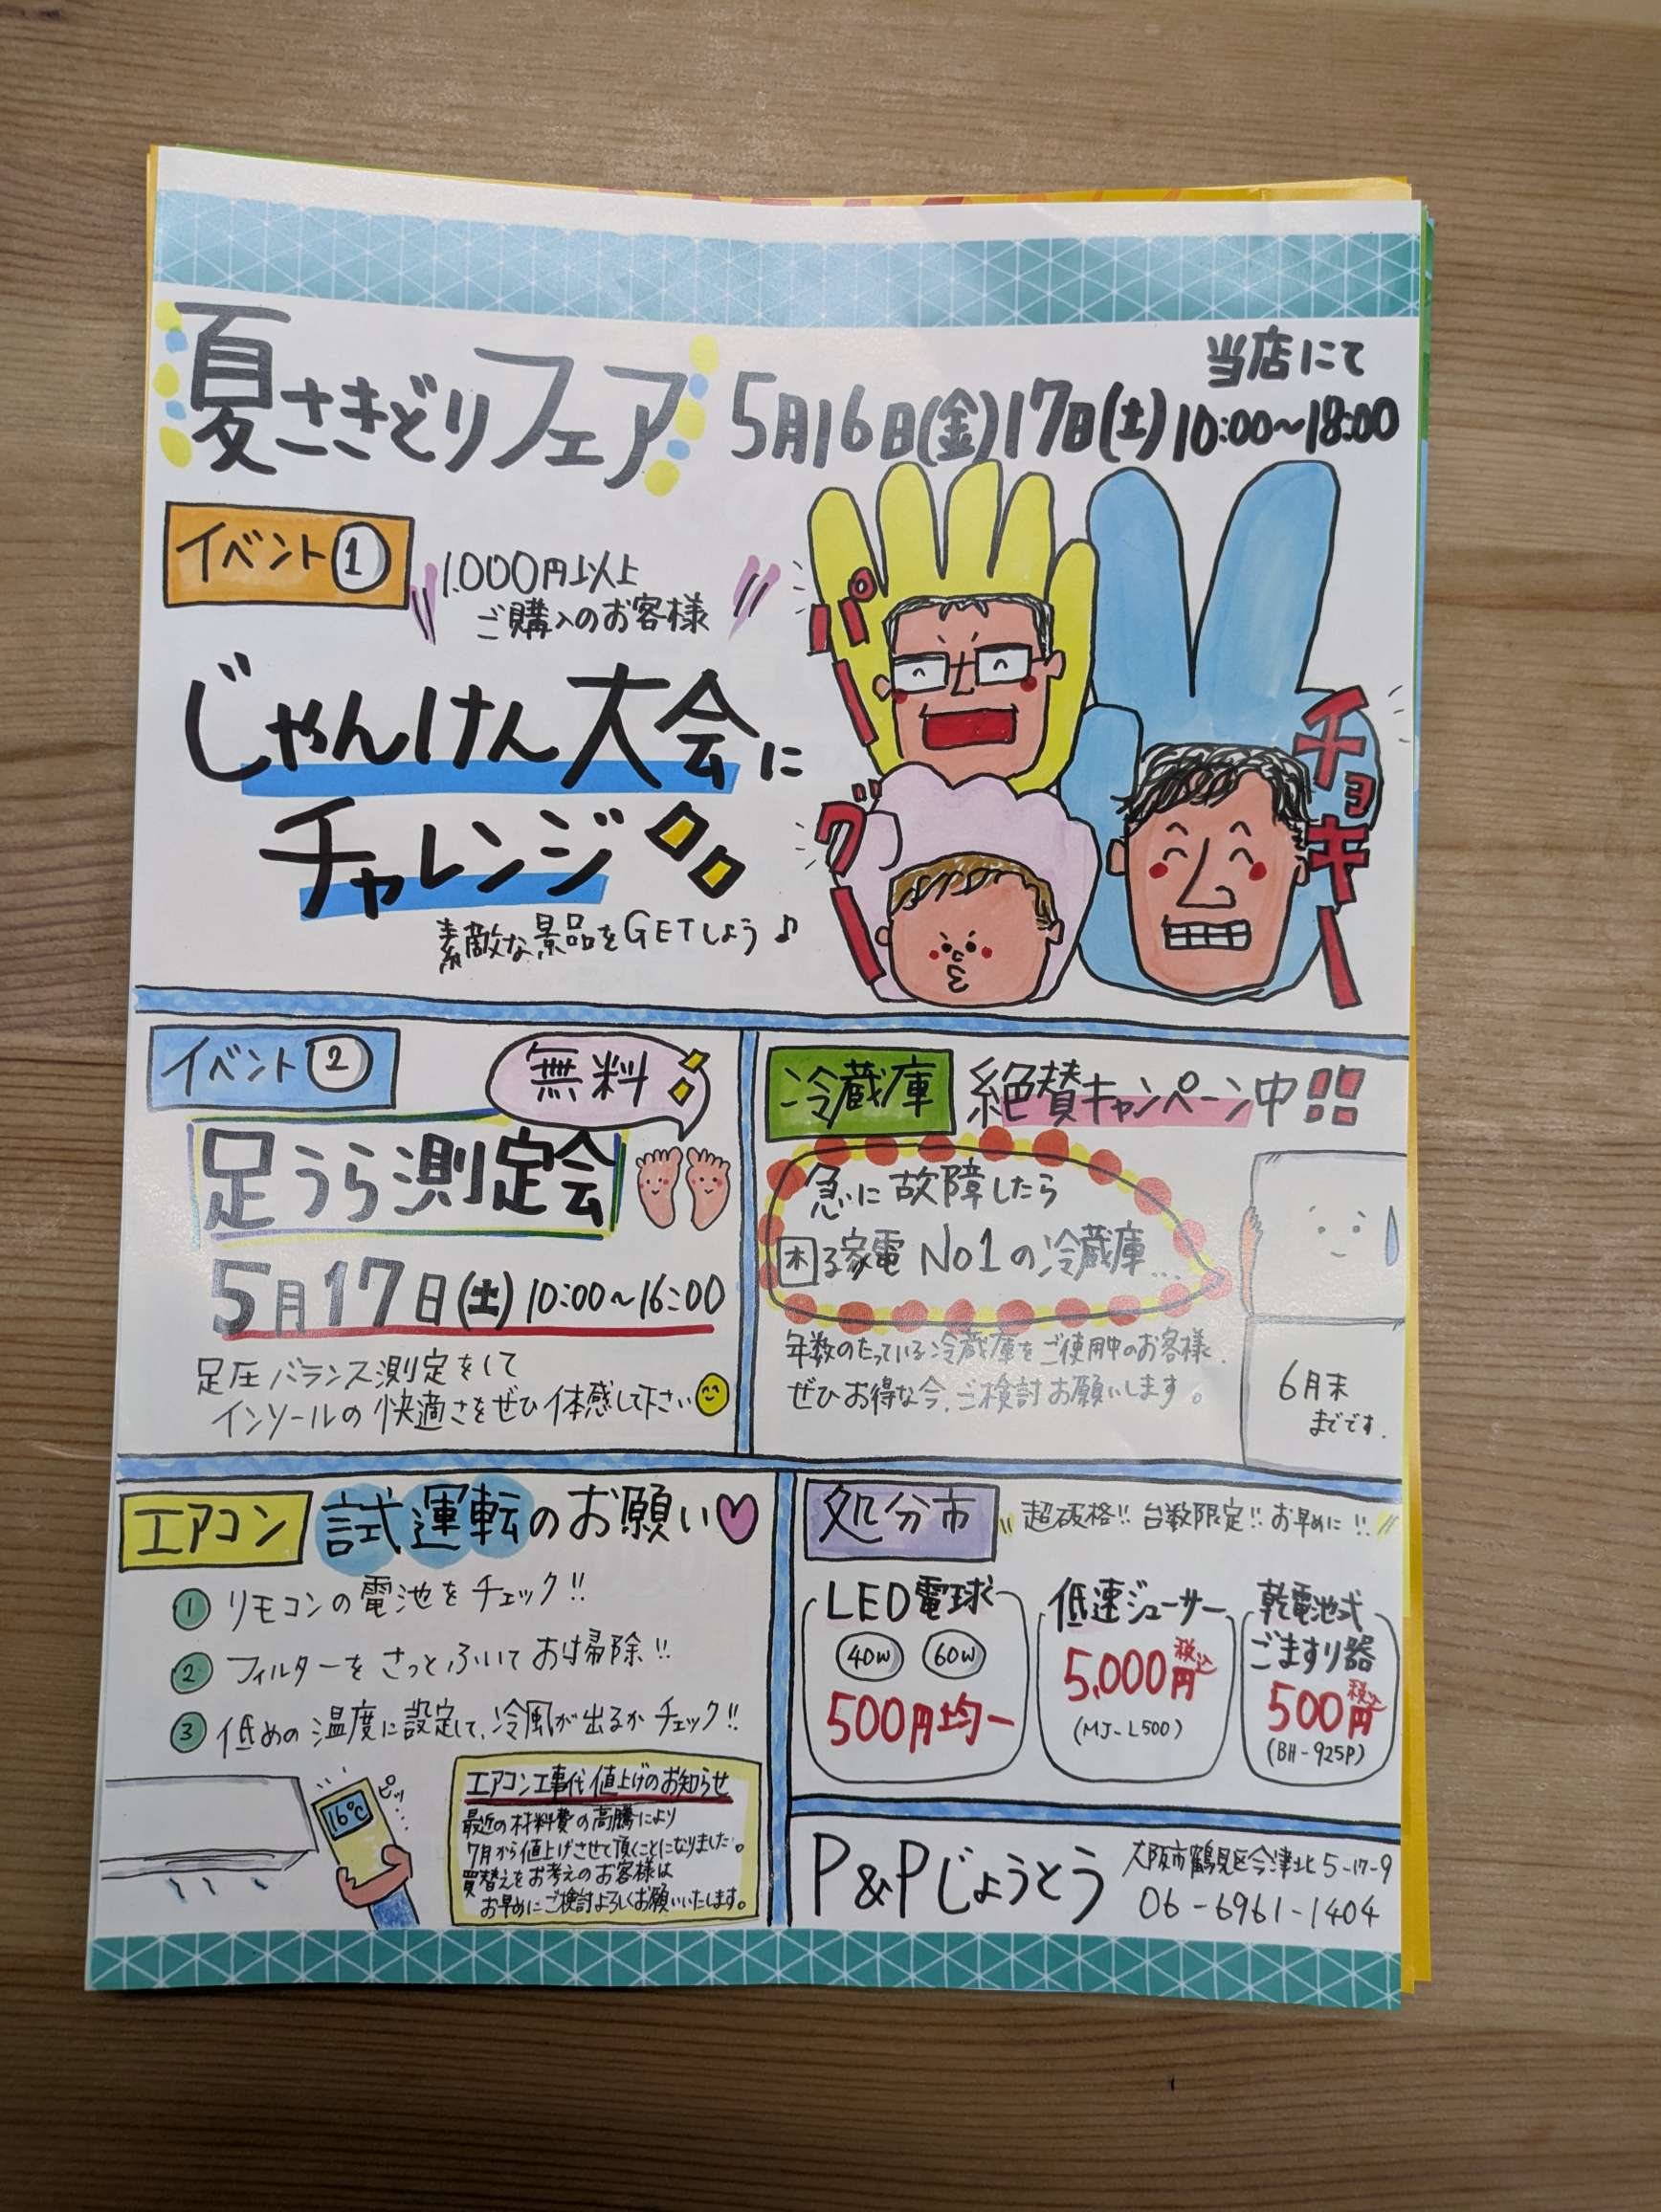 夏さきどりフェア
当店にて
5月16日(金)17日(土)10:00〜18:00
イベント①
1.000円以上
ご購入のお客様
じゃんけん大会に
チャレンジ
素敵な景品をGETしよう♪
パー
グー
チョキー
イベント②
無料
足うら測定会
5月17日(土)10:00〜16:00
足圧バランス測定をして
インソールの快適さをぜひ体感して下さい
冷蔵庫 絶賛キャンペーン中!!
急に故障したら
困る家電No1の冷蔵庫...
年数のたっている冷蔵庫をご使用中のお客様、
ぜひお得な今、ご検討お願いします。
6月末
までです.
エアコン 試運転のお願い♡
① リモコンの電池をチェック!!
② フィルターをさっとふいてお掃除!!
③ 低めの温度に設定して、冷風が出るかチェック!!
16℃
ピッ
エアコン工事代値上げのお知らせ
最近の材料費の高騰により
7月から値上げさせて頂くことになりました。
買替えをお考えのお客様は
お早めにご検討よろしくお願いいたします。
処分市
超破格!! 台数限定!! お早めに!!
LED電球
40W 60W
500円均一
低速ジューサー
5,000円税込
(MJ-L500)
乾電池式
ごますり器
500円税込
(BH-925P)
P&Pじょうとう
大阪市鶴見区今津北5-17-9
06-6961-1404